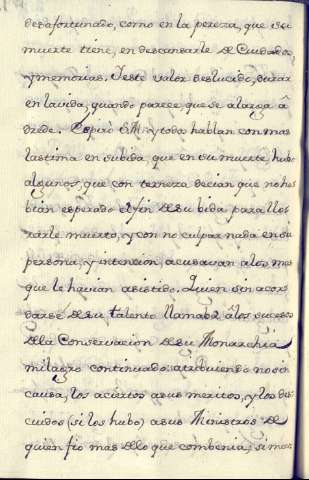 desafortunado, como en la pereza, que su
muerte tiene, en descansarle de Cuidados
y memorias. Y este valor deslucido, durar
en la vida, quando parece que se alarga â
drede. Espiró S.M. y todos hablan con mas
lastima en su bida, que en su muerte, hubo
algunos, que con terneza decian que no ha
bian esperado el fin de su bida para llo
rarle muerto, y con no culpar nada en su
persona, y intencion, acusavan a los mas
que le havian asistido. Quien sin acor
darse de su talento llamaba â los sucesos
de la Conservacion de su Monarchia
milagro continuado: atribuiendo no sin
causa, los aciertos a sus meritos, y los des
cuidos (si los hubo) a sus Ministros de
quien fio mas de lo que combenia; si mos